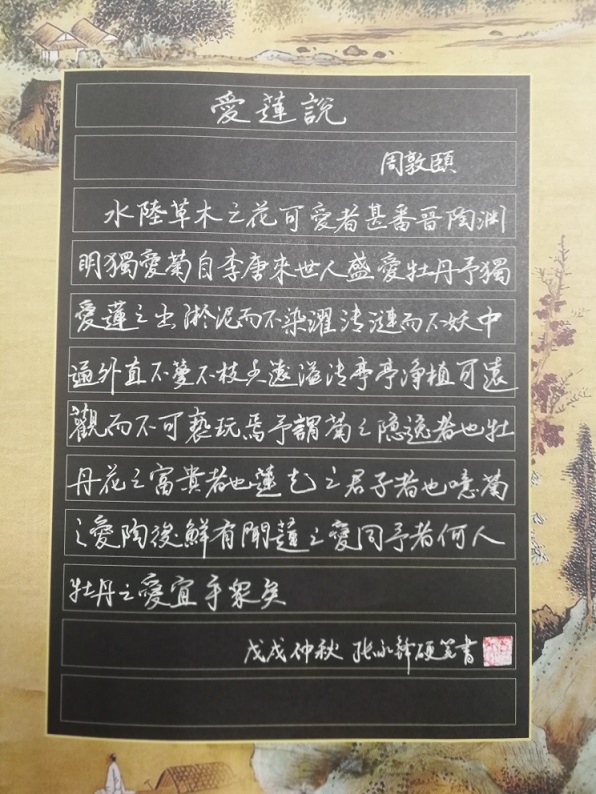 愛蓮說
周敦頤
水陸草木之花可愛者甚番晉陶渊
明獨愛菊自李唐來世人盛愛牡丹予獨
愛蓮之出淤泥而不染濯清漣而不妖中
通外直不蔓不枝香遠溢清亭亭淨植可遠
觀而不可褻玩焉予謂菊之隱逸者也牡
丹花之富貴者也蓮花之君子者也噫菊
之愛陶後鮮有聞蓮之愛同予者何人
牡丹之愛宜乎衆矣
戊戌仲秋 张永鋒硬笔書